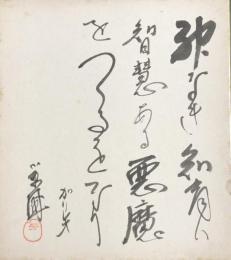 神なき知育は
智慧ある悪魔
をつくることなり